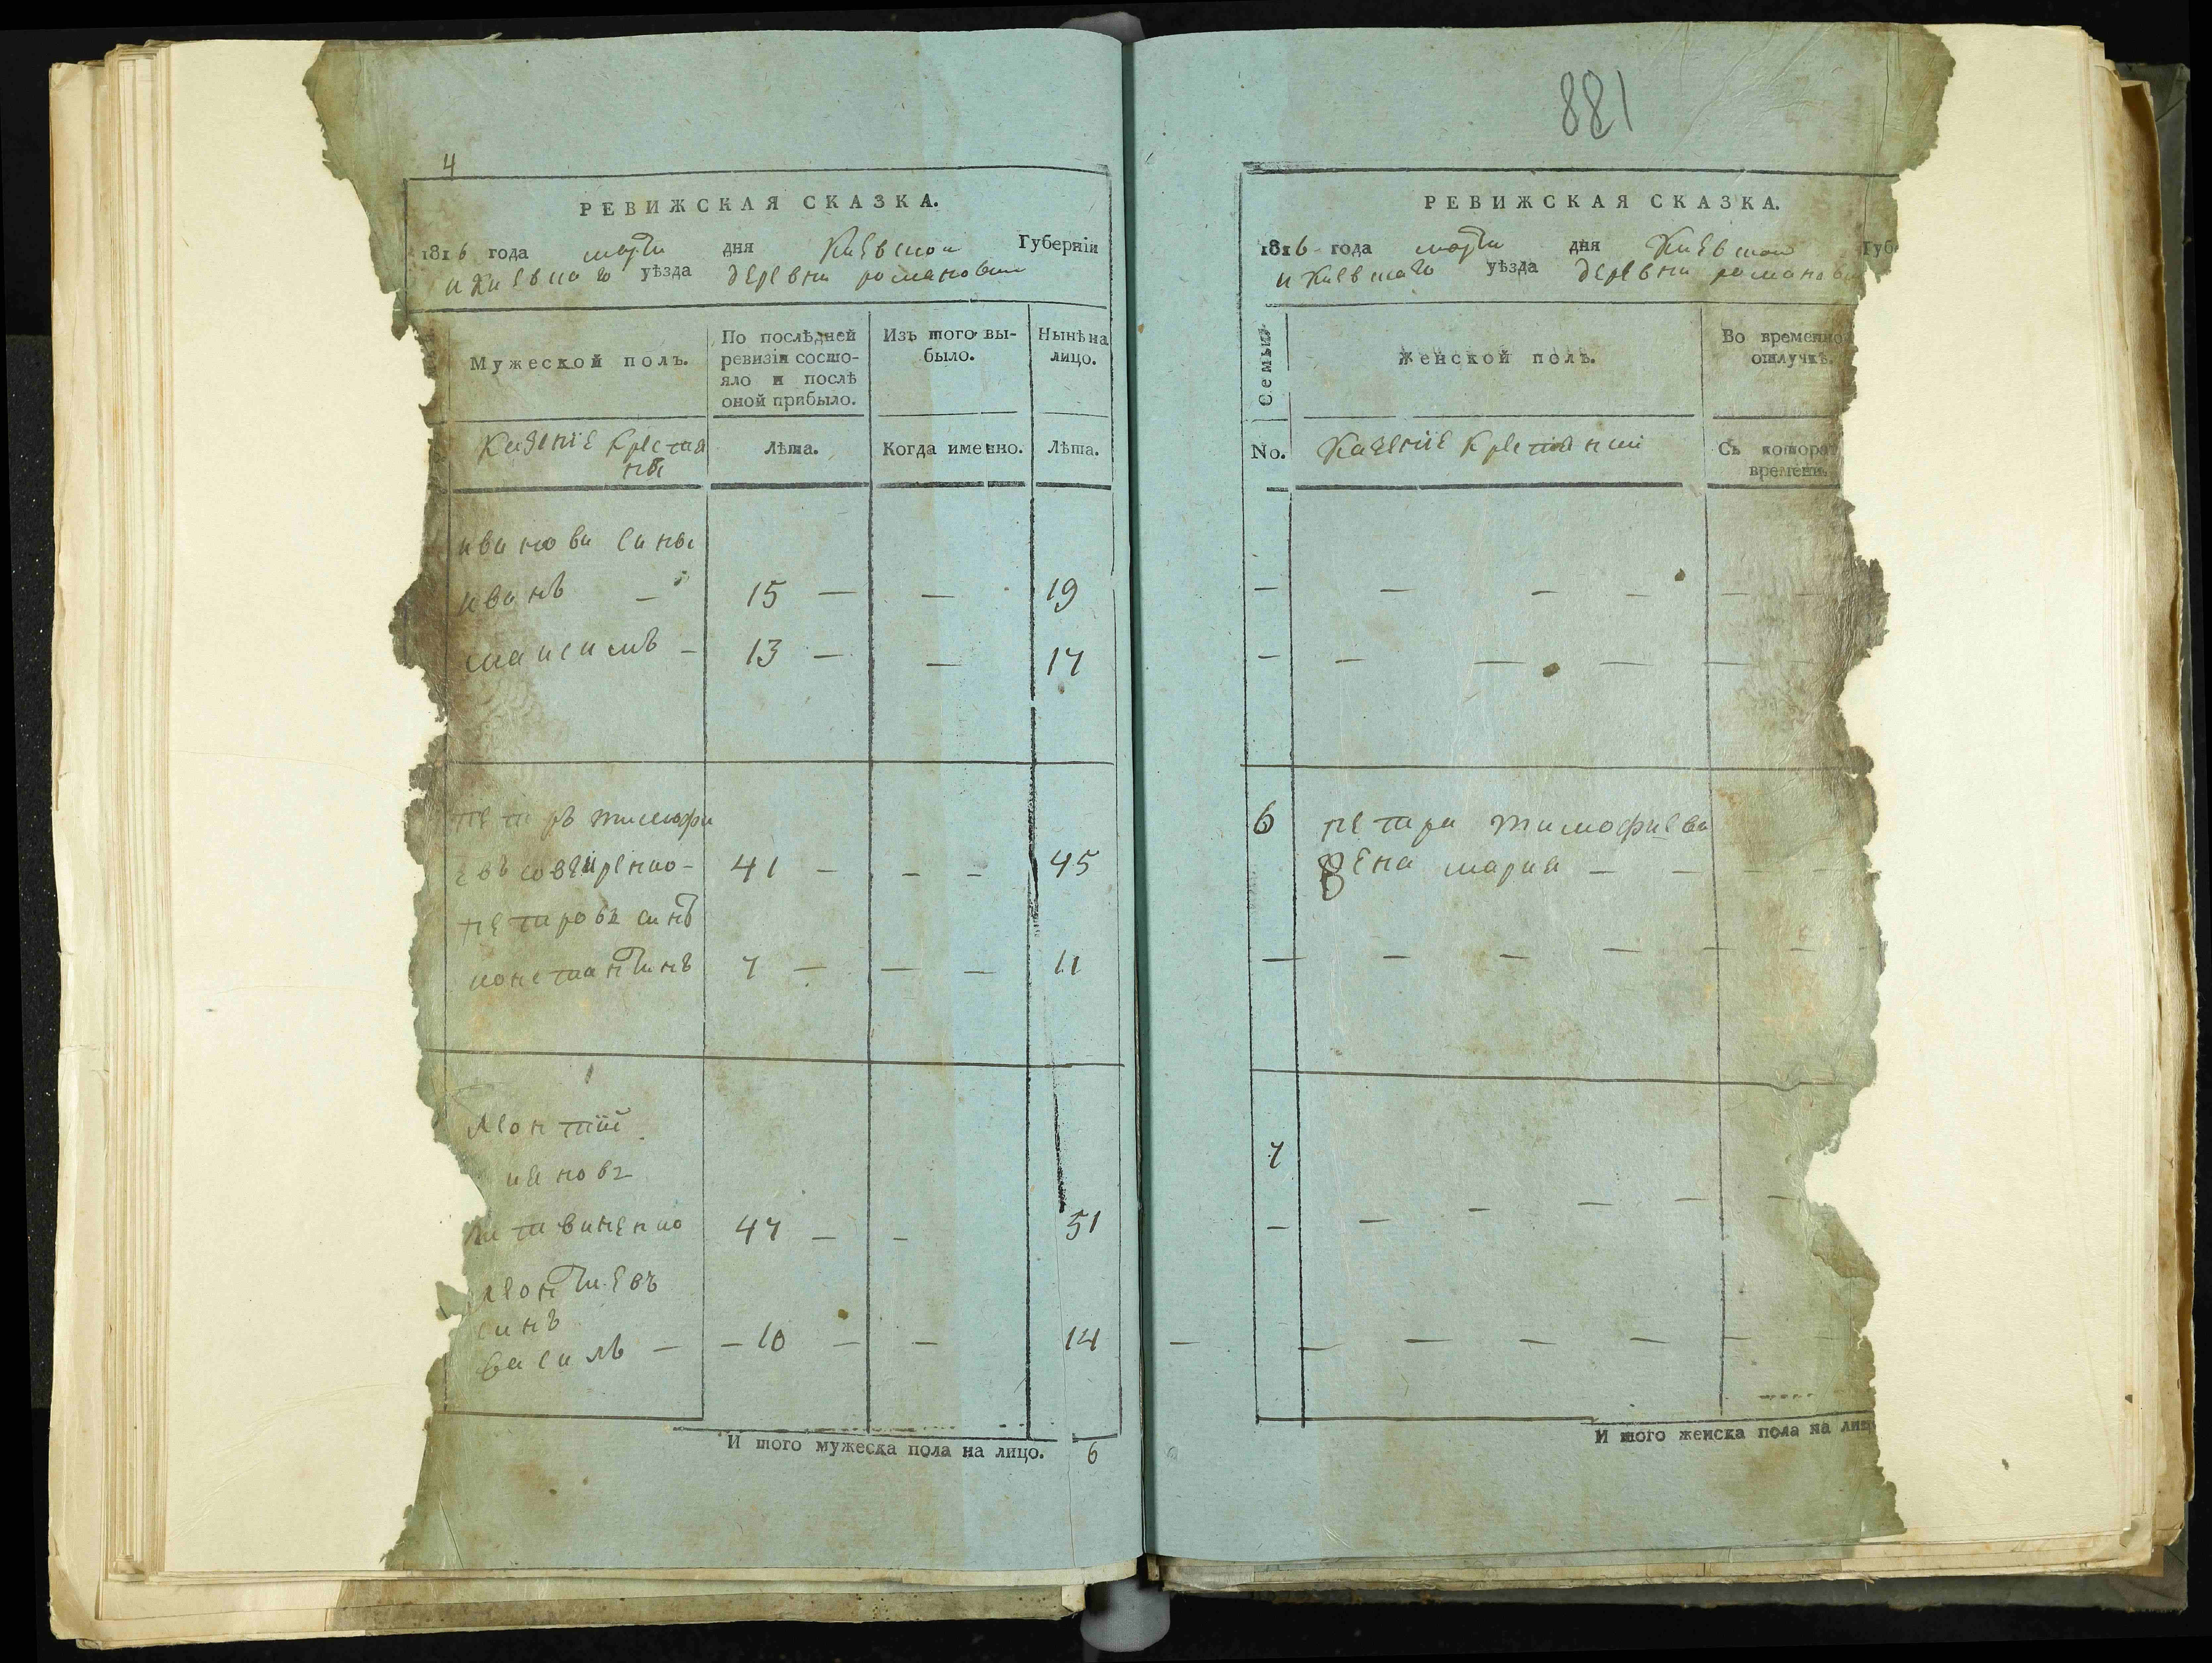 4
РЕВИЖСКАЯ СКАЗКА.
1816 года марта дня Киевской Губерніи
и Киевкаго уѣзда деревни романовки
Мужеской полъ.
По послѣдней ревизіи состо-
яло и послѣ
оной прибыло.
Изъ того вы-
было.
Нынѣ на
лицо.
Казенніе крестя
ны
Лѣта.
Когда именно.
Лѣта.
иванови сины
иванъ — 15 — — 19
максимъ — 13 — — 17
петръ тимофи
евъ 41 — — — 45
петровъ синъ
константинъ 7 — — — 11
Леонтій
литвиненко 47 — — 51
леонтиевъ
синъ
василь — — 10 — — 14
И того мужеска пола на лицо. 6
881
РЕВИЖСКАЯ СКАЗКА.
1816 года марта дня Киевской Губ
и Киевкаго уѣзда деревни романовки
Семьи
Женской полъ.
Во временной
отлучкѣ.
No.
Казенніе крестянки
Съ котораго
времени.
6 петра тимофиева
жена мария — — — —
7
И того женска пола на лицо